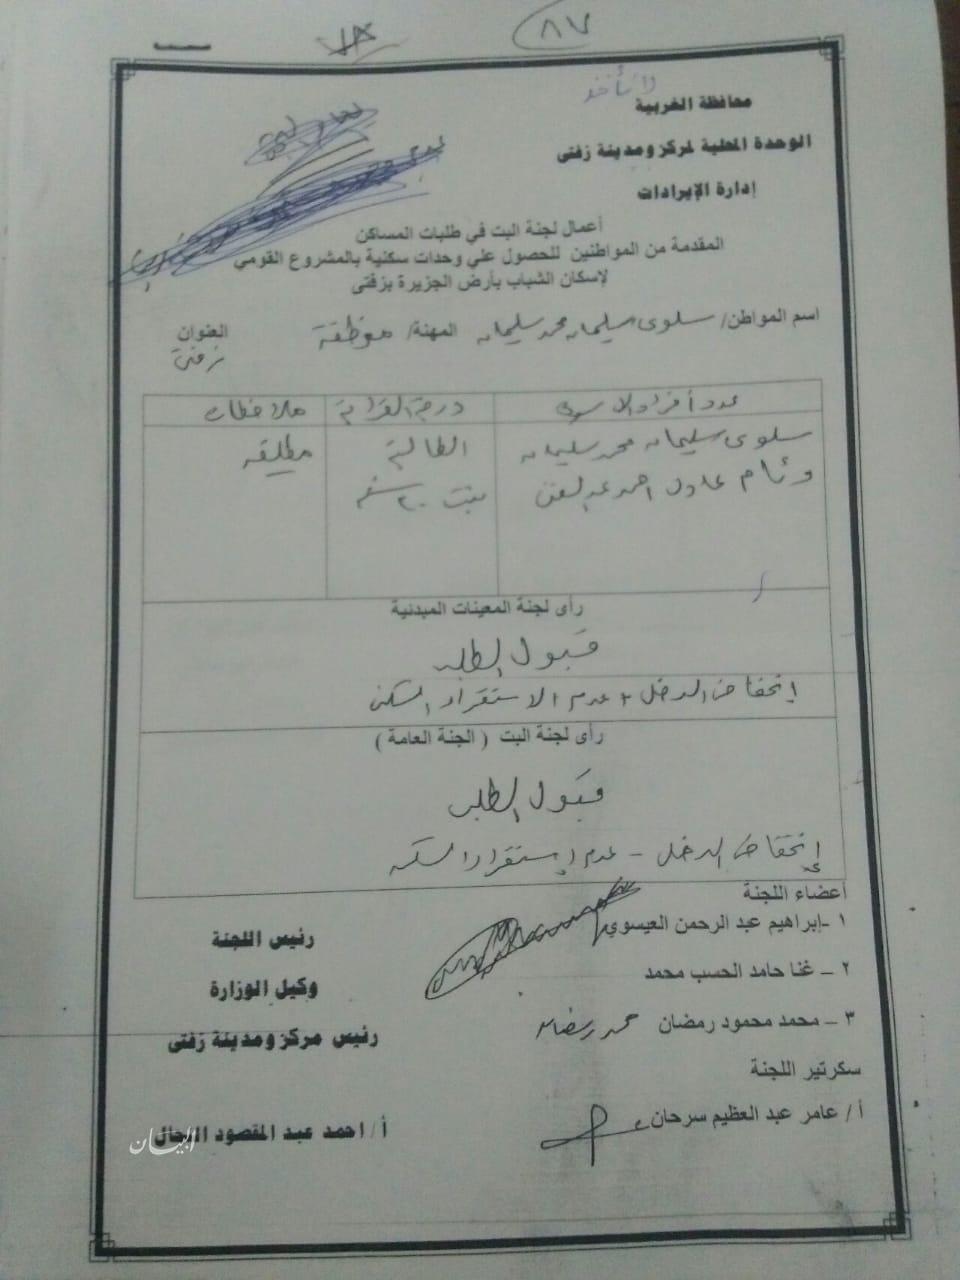 ٨٧
١٨
لا تأخذ
محافظة الغربية
الوحدة المحلية لمركز ومدينة زفتى
إدارة الإيرادات
أعمال لجنة البت في طلبات المساكن
المقدمة من المواطنين للحصول علي وحدات سكنية بالمشروع القومي
لإسكان الشباب بأرض الجزيرة بزفتى
اسم المواطن/ سلوى سليمان محمد سليمان المهنة/ موظفة العنوان
زفتى
عدد أفراد الاسرة درجة القرابة ملاحظات
سلوى سليمان محمد سليمان الطالبة مطلقه
وئام عادل احمد عبد بنت ٢٠ سنه
رأى لجنة المعينات المبدئية
قبول الطلب
إنخفاض الدخل + عدم الاستقرار السكن
رأى لجنة البت ( الجنة العامة )
قبول الطلب
إنخفاض الدخل - عدم إستقرار السكن
أعضاء اللجنة
١ -إبراهيم عبد الرحمن العيسوي
رئيس اللجنة
٢ - غنا حامد الحسب محمد
وكيل الوزارة
٣ - محمد محمود رمضان محمد رمضان
رئيس مركز ومدينة زفتى
سكرتير اللجنة
أ/ عامر عبد العظيم سرحان
أ/ احمد عبد المقصود
البيان